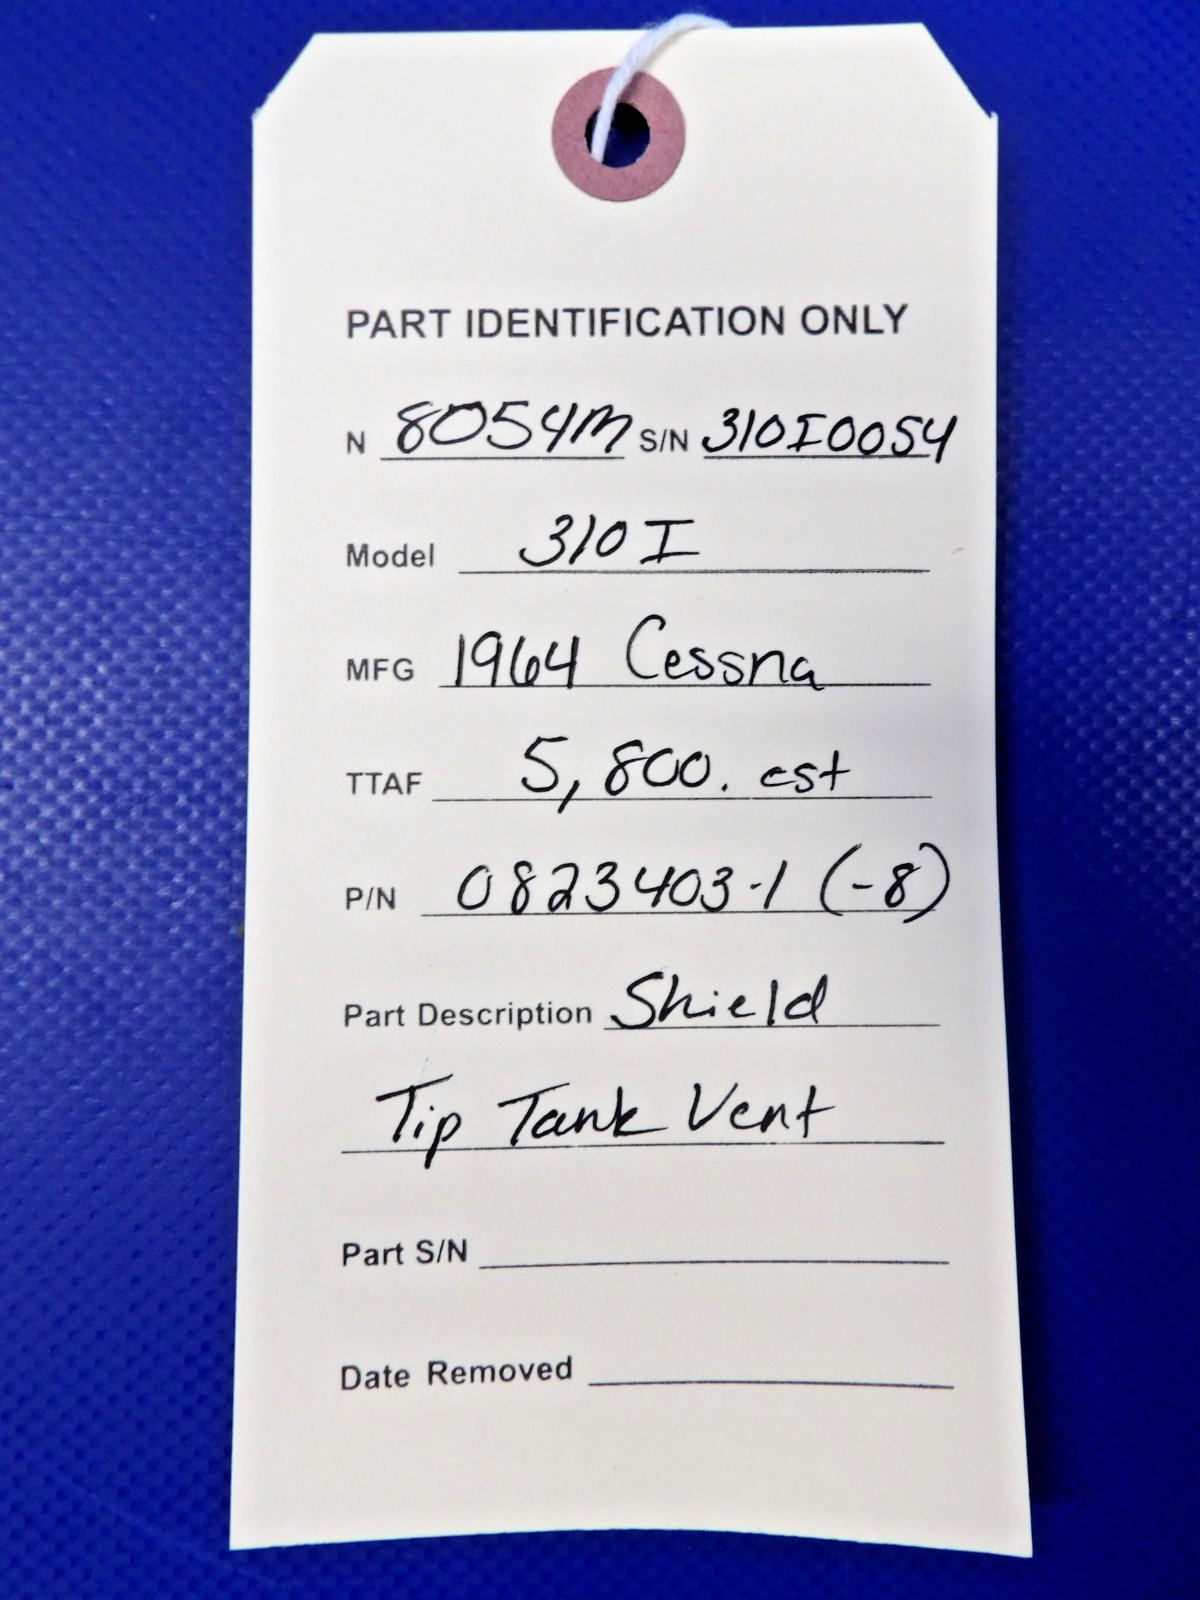 PART IDENTIFICATION ONLY
N 8054M S/N 310I0054
Model 310 I
MFG 1964 Cessna
TTAF 5,800. est
P/N 0823403-1 (-8)
Part Description Shield
Tip Tank Vent
Part S/N
Date Removed